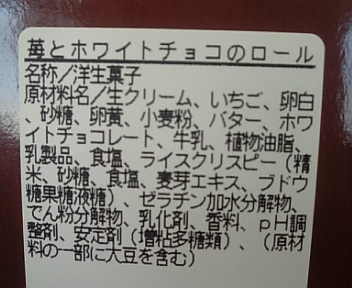 苺とホワイトチョコのロール
名称／洋生菓子
原材料名／生クリーム、いちご、卵白
、砂糖、卵黄、小麦粉、バター、ホワ
イトチョコレート、牛乳、植物油脂、
乳製品、食塩、ライスクリスピー（精
米、砂糖、食塩、麦芽エキス、ブドウ
糖果糖液糖）、ゼラチン加水分解物、
でん粉分解物、乳化剤、香料、ｐＨ調
整剤、安定剤（増粘多糖類）、（原材
料の一部に大豆を含む）